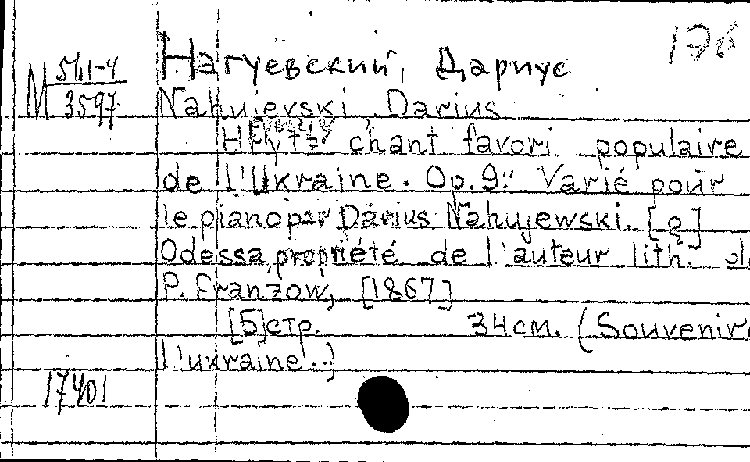 176
М 54.1-4
3597
Нагуевский, Дариус
Nahujevski, Darius
chant favori populaire
de l'Ukraine. Op.9." Varié pour
le piano par Darius Nahujewski. [
Odessa, propriété de l'auteur lith.
P. Franzow, [1867]
[5] стр. 34см. (Souvenir
l'ukraine..)
17401